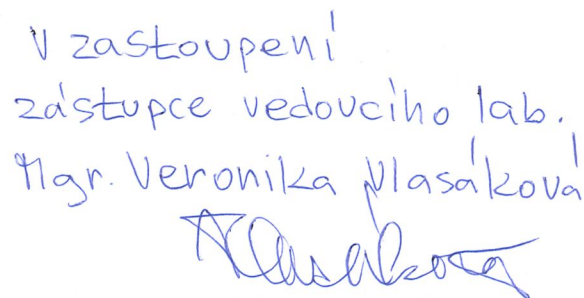 V zastoupení
zástupce vedoucího lab.
Mgr. Veronika Vlasáková